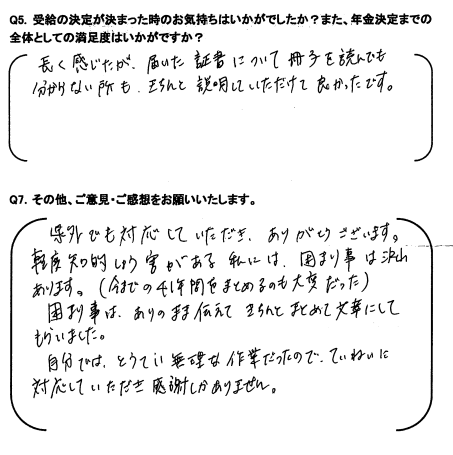 Q5. 受給の決定が決まった時のお気持ちはいかがでしたか？また、年金決定までの
全体としての満足度はいかがですか？
長く感じたが、届いた証書について冊子を読んでも
分からない所も、きちんと説明していただけて良かったです。
Q7. その他、ご意見・ご感想をお願いいたします。
県外でも対応していただき、ありがとうございます。
軽度知的しょう害がある私には、困まり事は沢山
あります。（今までの41年間をまとめるのも大変だった）
困まり事は、ありのまま伝えてきちんとまとめて文章にして
もらいました。
自分では、とうてい無理な作業だったので、ていねいに
対応していただき感謝しかありません。